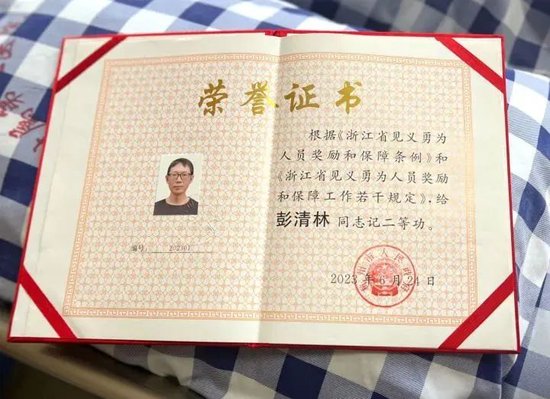 荣誉证书
根据《浙江省见义勇为
人员奖励和保障条例》和
《浙江省见义勇为人员奖励
和保障工作若干规定》,给
彭清林 同志记二等功。
编号:
2023年6月21日